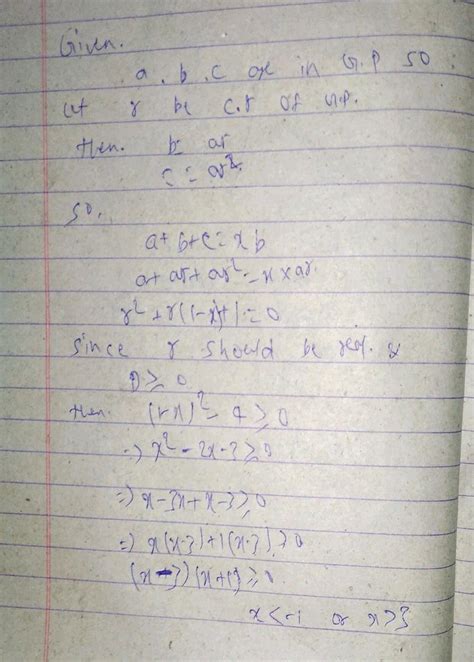 Given.
a, b, c are in G.P so
let r be c.r of G.P.
then. b = ar
c = ar²
so,
a+b+c = xb
a+ar+ar² = x×ar
r²+r(1-x)+1=0
since r should be real &
D ≥ 0
then. (1-x)²-4 ≥ 0
=> x²-2x-3 ≥ 0
=> x-3x+x-3 ≥ 0
=> x(x-3)+1(x-3) ≥ 0
(x-3)(x+1) ≥ 0
x<-1 or x>3